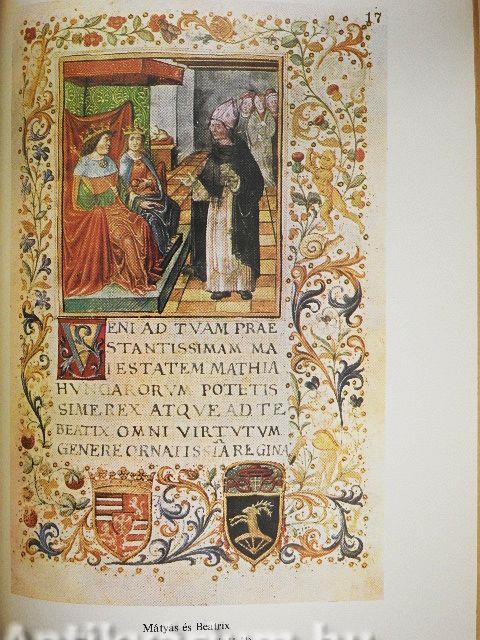 17
VENI AD TVAM PRAE
STANTISSIMAM MA
IESTATEM MATHIA
HUNGARORVM POTETIS
SIME REX ATQVE AD TE
BEATIX OMNI VIRTVTVM
GENERE ORNATISSIA REGINA
Mátyás és Beatrix